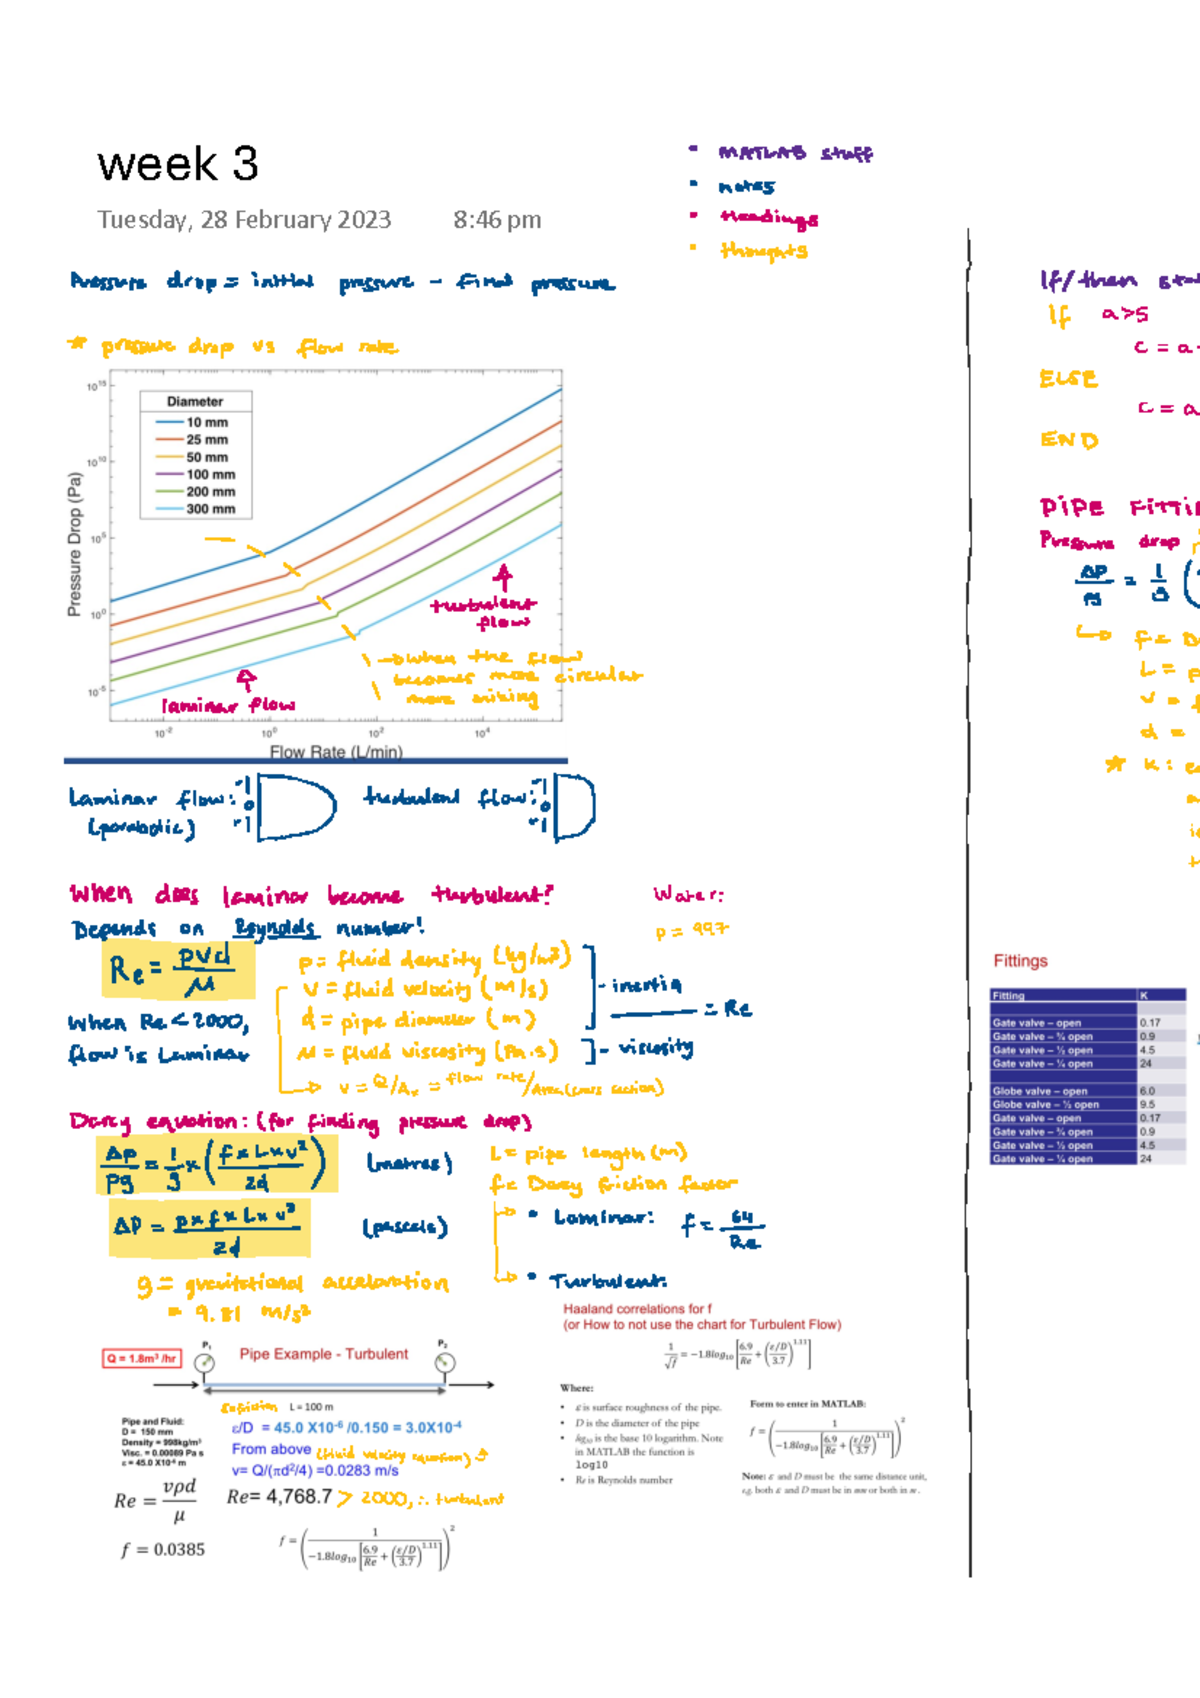 week 3
Tuesday, 28 February 2023 8:46 pm
• MATLAB stuff
• notes
• Headings
• thoughts
Pressure drop = initial pressure - final pressure
* pressure drop vs flow rate
Diameter
10 mm
25 mm
50 mm
100 mm
200 mm
300 mm
Pressure Drop (Pa)
10^15
10^10
10^5
10^0
10^-5
10^-2
10^0
10^2
10^4
Flow Rate (L/min)
turbulent flow
laminar flow
when the flow
becomes more circular
more mixing
Laminar flow:
(parabolic)
-1
0
-1
turbulent flow:
-1
0
-1
When does laminar become turbulent?
Depends on Reynolds number!
Re = ρvd/μ
When Re < 2000,
flow is Laminar
ρ = fluid density (kg/m³)
v = fluid velocity (m/s)
d = pipe diameter (m)
μ = fluid viscosity (Pa.s)
v = Q/Ax = flow rate/Area (cross section)
- inertia
- viscosity
= Re
Water:
ρ = 997
Darcy equation: (for finding pressure drop)
Δp/ρg = 1/g × (f × L × v²/2d) (metres)
ΔP = ρ × f × L × v²/2d (pascals)
L = pipe length (m)
f = Darcy friction factor
• Laminar: f = 64/Re
• Turbulent:
g = gravitational acceleration
= 9.81 m/s²
Haaland correlations for f
(or How to not use the chart for Turbulent Flow)
1/√f = -1.8log₁₀[6.9/Re + ((ε/D)/3.7)^1.11]
Where:
• ε is surface roughness of the pipe.
• D is the diameter of the pipe
• log₁₀ is the base 10 logarithm. Note
in MATLAB the function is
log10
• Re is Reynolds number
Form to enter in MATLAB:
f = (1/(-1.8log₁₀[6.9/Re + ((ε/D)/3.7)^1.11]))²
Note: ε and D must be the same distance unit,
e.g. both ε and D must be in mm or both in m.
Q = 1.8m³/hr
P₁
Pipe Example - Turbulent
P₂
L = 100 m
Pipe and Fluid:
D = 150 mm
Density = 998kg/m³
Visc. = 0.00089 Pa s
ε = 45.0 X10⁻⁶ m
ε/D = 45.0 X10⁻⁶ /0.150 = 3.0X10⁻⁴
From above (fluid velocity equation)
v= Q/(πd²/4) =0.0283 m/s
Re = vρd/μ
Re= 4,768.7 > 2000, ∴ turbulent
f = 0.0385
f = (1/(-1.8log₁₀[6.9/Re + ((ε/D)/3.7)^1.11]))²
If/then
If a>5
c = a
ELSE
c = a
END
PIPE
Pressure drop
ΔP/ρg = 1/g (
f =
L =
v =
d =
* k:
Fittings
Fitting K
Gate valve – open 0.17
Gate valve – ¾ open 0.9
Gate valve – ½ open 4.5
Gate valve – ¼ open 24
Globe valve – open 6.0
Globe valve – ½ open 9.5
Gate valve – open 0.17
Gate valve – ¾ open 0.9
Gate valve – ½ open 4.5
Gate valve – ¼ open 24